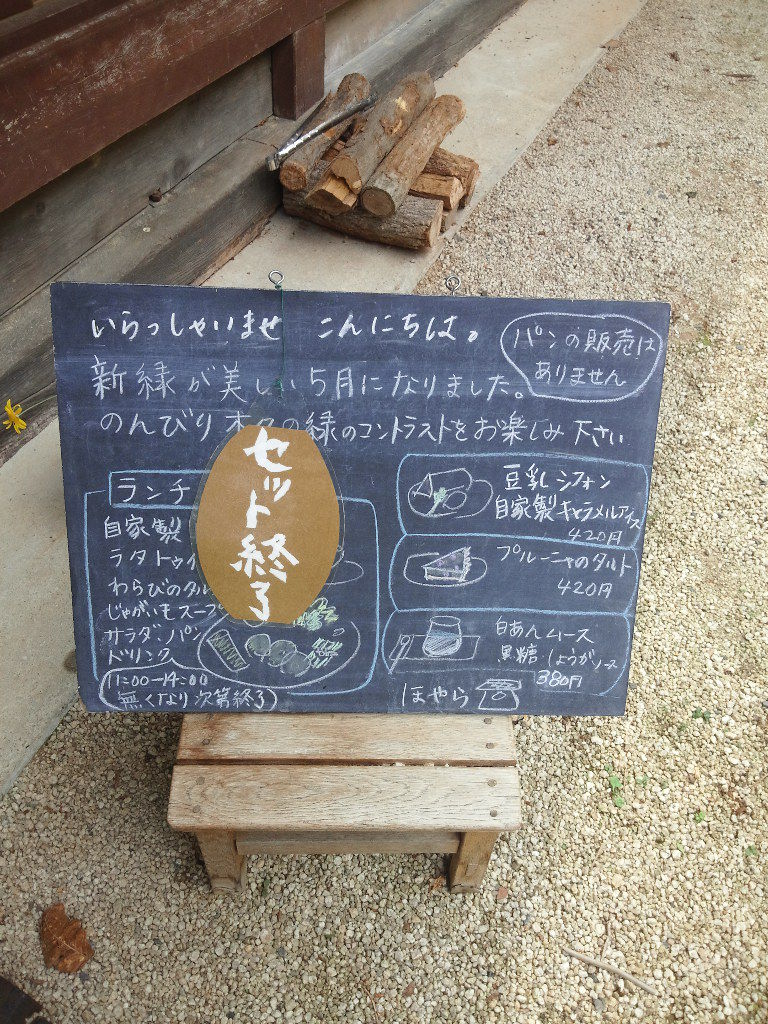 いらっしゃいませ こんにちは。
パンの販売は
ありません
新緑が美しい5月になりました。
のんびり木々の緑のコントラストをお楽しみ下さい
ランチ
自家製
ラタトゥイ
わらびのタル
じゃがいもスープ
サラダ、パン
ドリンク
11:00-14:00
無くなり次第終了
セット終了
豆乳シフォン
自家製キャラメルアイス
420円
プルーニャのタルト
420円
白あんムース
黒糖しょうがソース
380円
ほやら